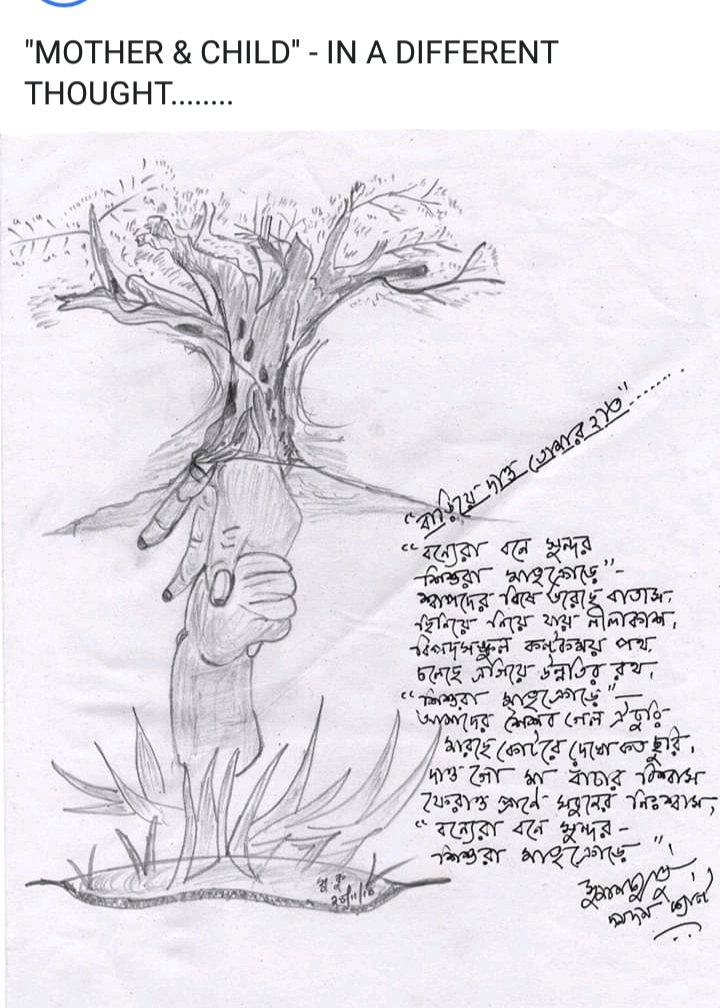 "MOTHER & CHILD" - IN A DIFFERENT
THOUGHT........
"বাড়িয়ে দাও তোমার হাত".......
"বন্যেরা বনে সুন্দর
শিশুরা মাতৃক্রোড়ে"-
শ্বাপদের বিষে ভরেছে বাতাস,
ছিনিয়ে নিয়ে যায় নীলাকাশ,
বিপদসঙ্কুল কন্টকময় পথ,
চলেছে এগিয়ে উন্নতির রথ,
"শিশুরা মাতৃক্রোড়ে"—
আমাদের শৈশব গেল ঐ চুরি
মারছে কোটরে দেখো কত ছুরি,
দাও গো মা বাঁচার বিশ্বাস
ফেরাও প্রানে নিঃশ্বাস,
"বন্যেরা বনে সুন্দর -
শিশুরা মাতৃক্রোড়ে"।